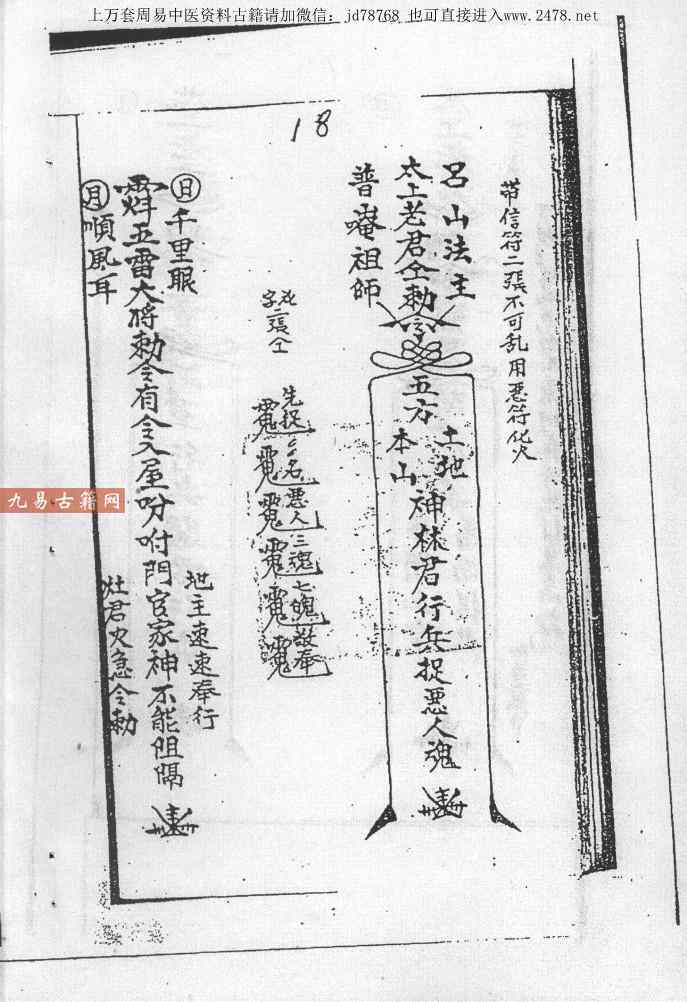 上万套周易中医资料古籍请加微信：jd78768 也可直接进入www.2478.net
18
带信符二張不可乱用惡符化火
呂山法主
太上老君仝勅令
普唵祖師
五方
土地
本山
神林君行兵捉惡人魂
字二張仝
先捉
名惡人
三魂
七魄
敬奉
日千里眼
五雷大將勅令有令入屋吩咐門官家神不能阻隔
月順風耳
地主速速奉行
灶君火急令勅
九易古籍网